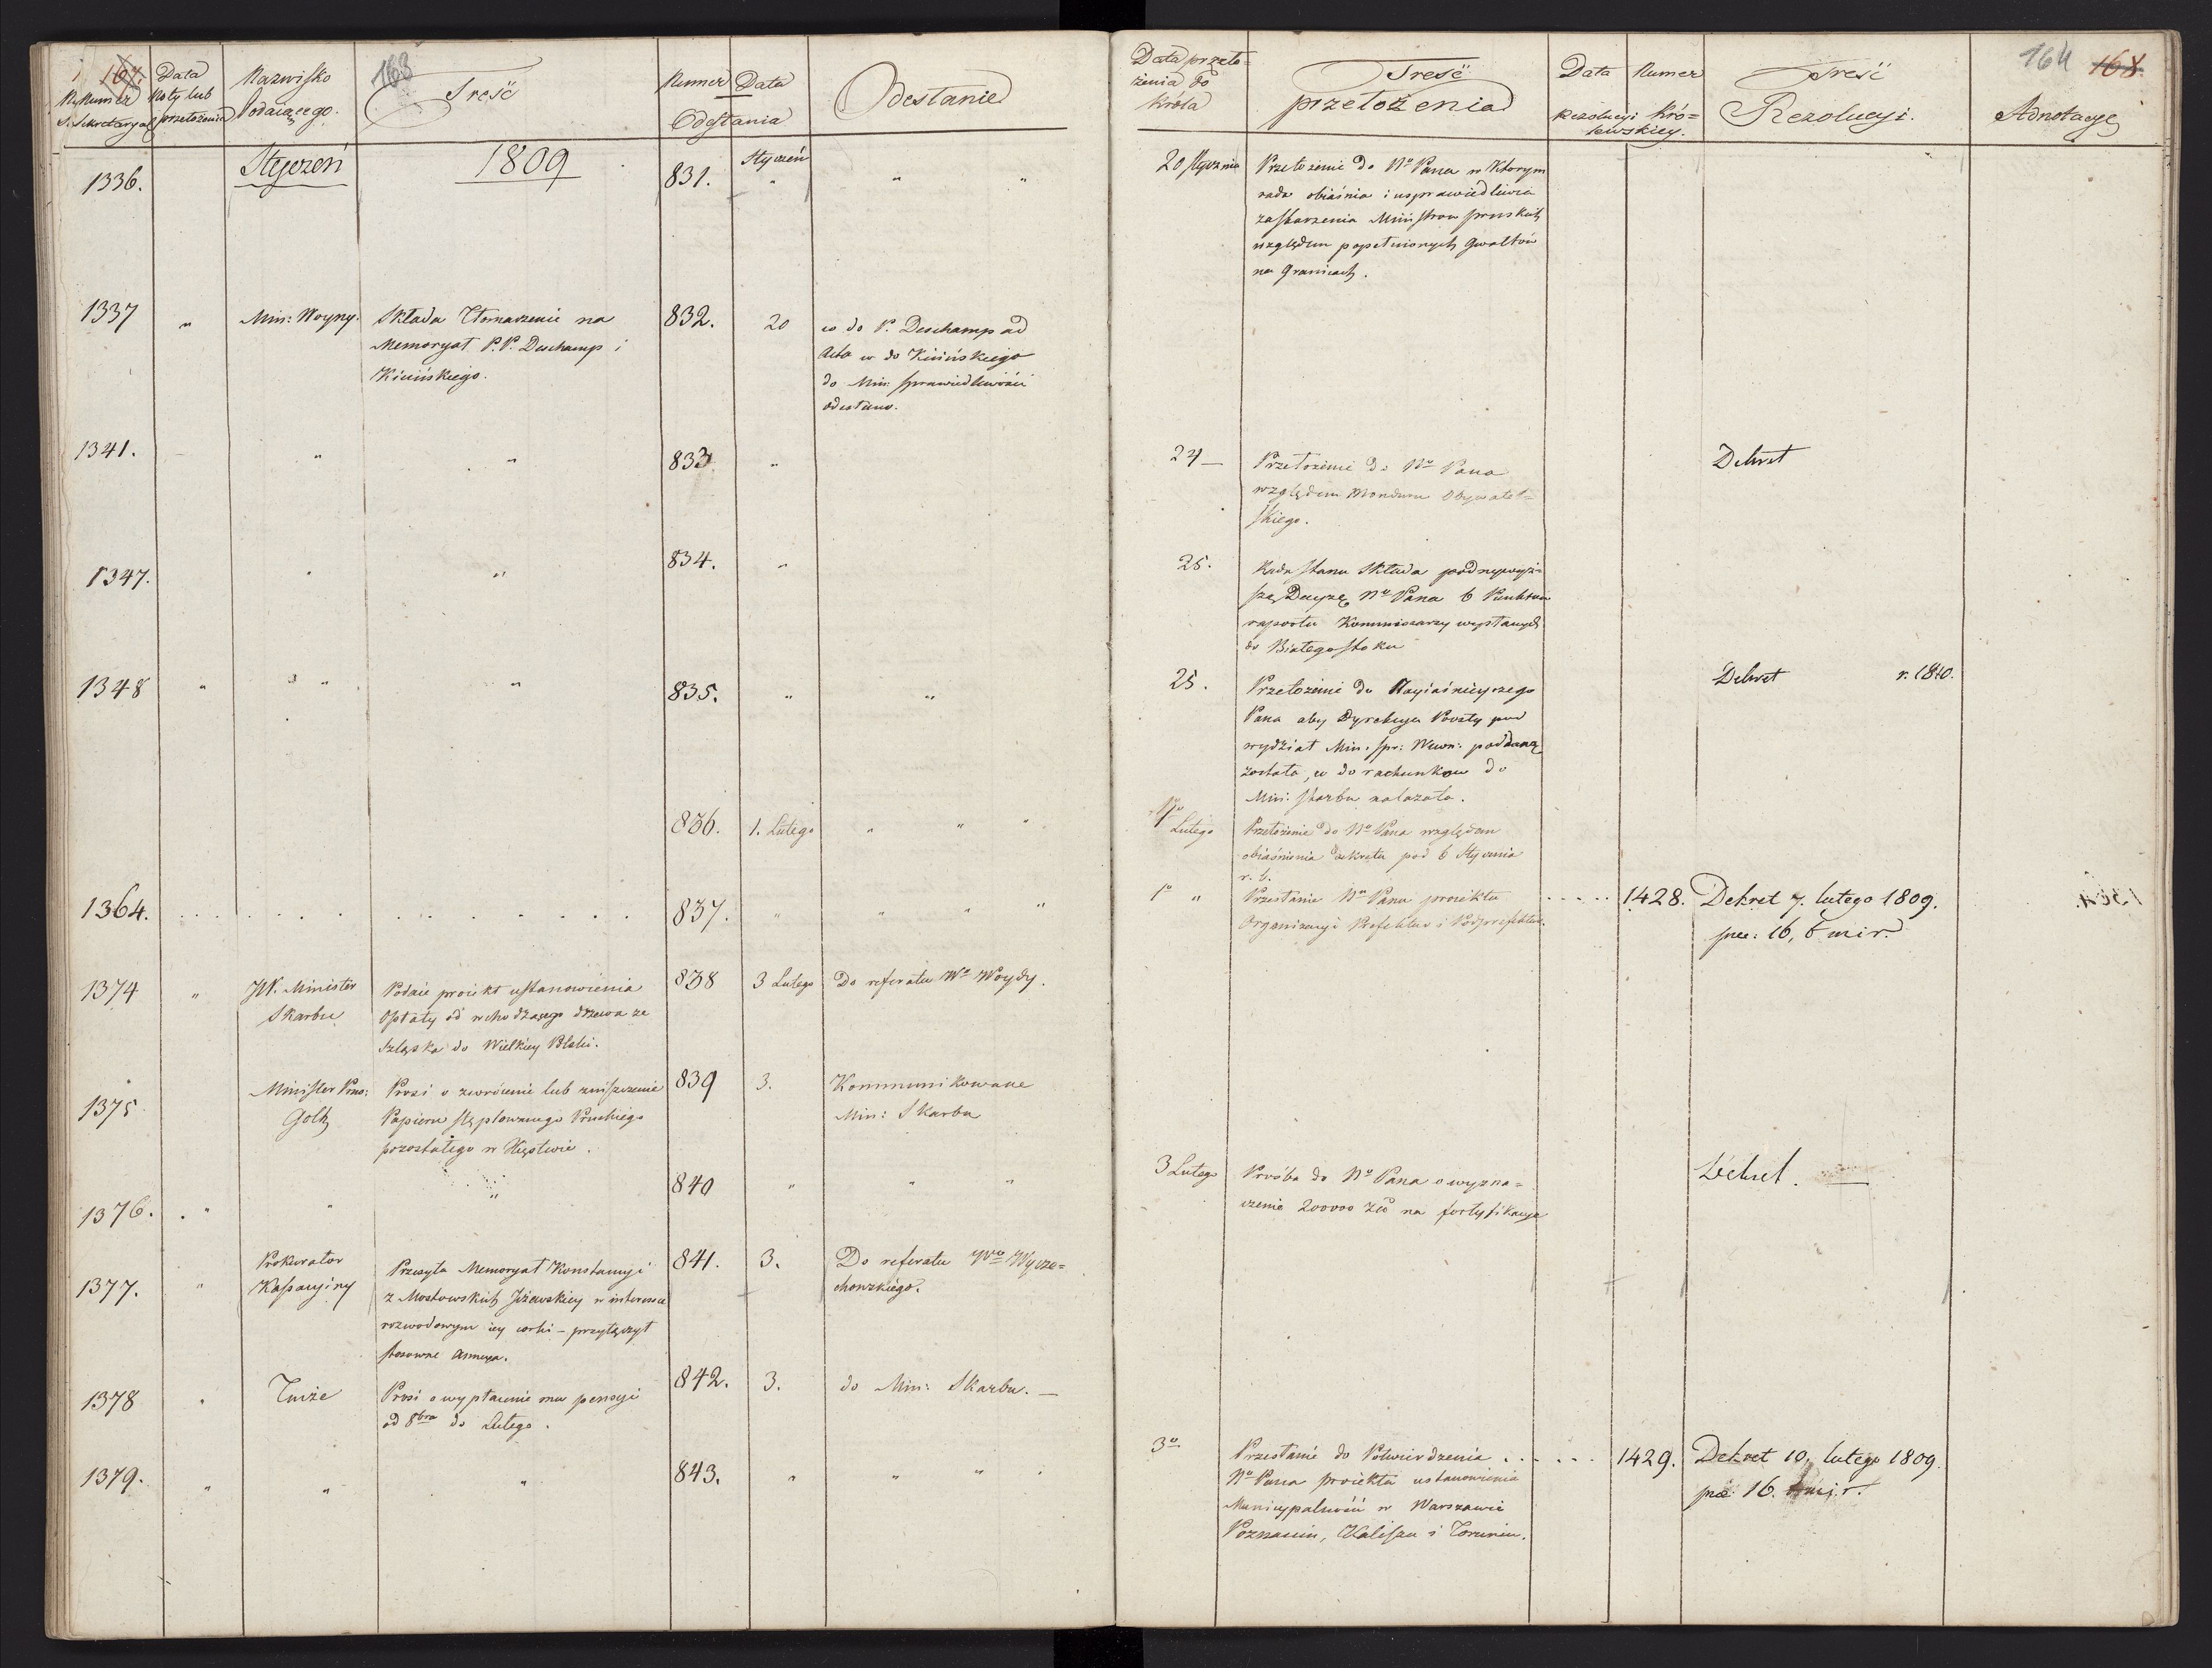 167.
Numer
Sekretaryat
Data
Noty lub
przełożenia
Nazwisko
Podaiącego.
163
Treść
Numer Data
Odesłania
Odesłanie
Styczeń
1809
1336.
831.
Styczeń
"
"
"
1337
"
Min: Woyny.
Składa Tłomaczenie na
Memoryał P.P. Deschamp i
Kicińskiego.
832.
20
co do P. Deschamp ad
Acta co do Kicińskiego
do Min: sprawiedliwości
odesłano.
1341.
"
"
833.
"
1347.
"
"
834.
"
1348
"
"
"
835.
"
"
836.
1. Lutego
"
"
"
1364.
837.
"
"
"
"
1374
"
JW. Minister
Skarbu
Podaie proiekt ustanowienia
Opłaty od wchodzącego drzewa ze
Szląska do Wielkiey Polski.
838
3 Lutego
Do referatu Wo Woydy.
1375
Minister Prus:
Goltz
Prosi o zwrócenie lub zniszczenie
Papieru stęplowanego Pruskiego
pozostałego w Xięstwie.
839
3.
Kommunikowane
Min: Skarbu
1376.
"
"
"
840
"
"
"
1377.
"
Prokurator
Kassacyiny
Przesyła Memoryał Konstancyi
z Mostowskich Jżewskiey w interesie
rozwodowym iey corki – przyłączył
stosowne annexa.
841.
3.
Do referatu Wo Wycze=
chowskiego.
1378
"
Prosi o wypłacenie mu pensyi
od 8bra do Lutego.
842.
3.
do Min: Skarbu. —
1379.
"
"
"
843.
"
"
"
Data przeło=
żenia do
Króla
Treść
przełożenia
Data Numer
Rezolucyi Kró=
lewskiey.
Treść
Rezolucyi.
164 168.
Adnotacye
20 Stycznia
Przełożenie do No Pana w Ktorym
rada obiaśnia i usprawiedliwia
zaskarzenia Ministrow pruskich
względem popełnionych gwałtów
na granicach.
24 —
Przełożenie do No Pana
względem Mondura Obywatel=
skiego.
Dekret
25.
Rada stanu składa pod naywyż=
szą Decyzę No Pana 6 Punktow
raportu Kommissarzy wysłanych
do Białegostoku
25.
Przełożenie do Nayiaśnieyszego
Pana aby Dyrekcya Poczty pod
wydział Min: spr: Wewn: poddaną
została, co do rachunkow do
Min: skarbu nalazała.
Dekret r. 1810.
1o
Lutego
Przełożenie do No Pana względem
obiaśnienia dekretu pod 6 Stycznia
r. b.
1o "
Przesłanie No Panu proiektu
Organizacyi Prefektur i Podprefektur.
1428.
Dekret 7. lutego 1809.
prez: 16, t. mir.
3 Lutego
Prośba do No Pana o wyzna=
czenie 200000 Zło na fortyfikacye
Dekret.
3o
Przesłanie do Potwierdzenia
No Pana proiektu ustanowienia
Municypalności w Warszawie
Poznaniu, Kaliszu i Toruniu.
1429.
Dekret 10. lutego 1809.